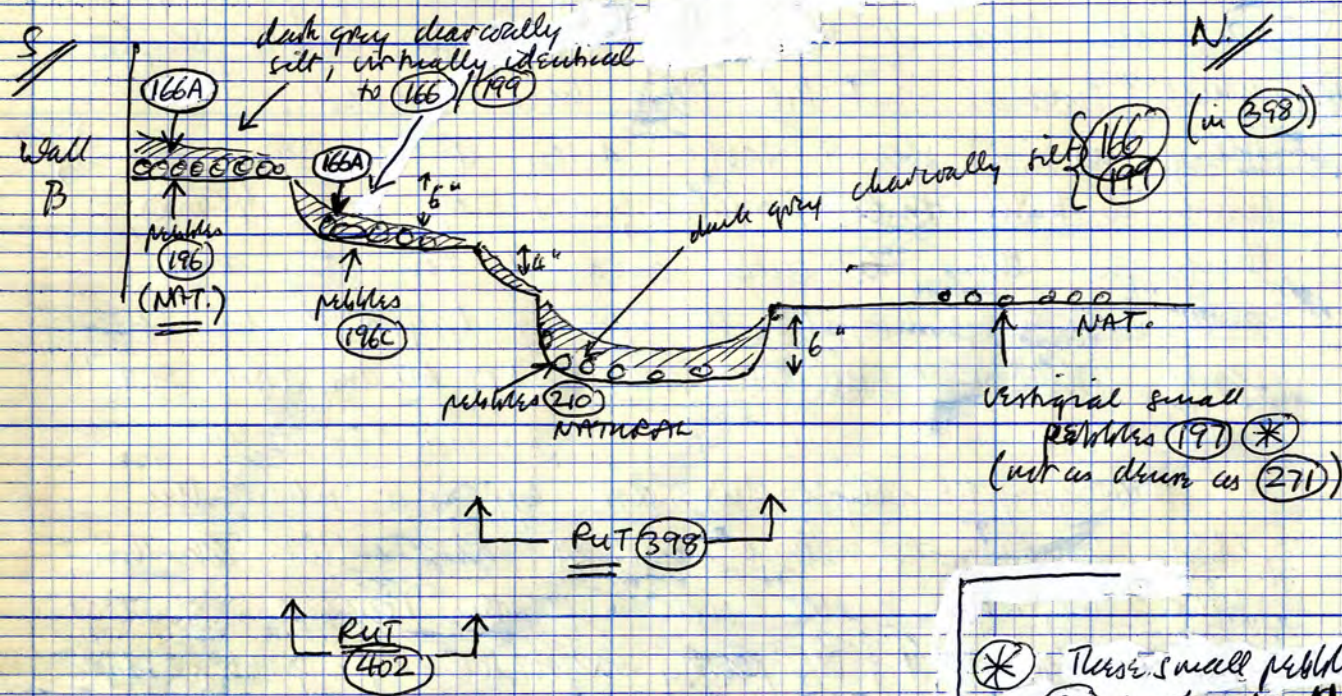 S
N.
dark grey charcoally
silt, virtually identical
to 166 / 199
166A
Wall
B
166A
6"
pebbles
196
(NAT.)
pebbles
196C
4"
dark grey charcoally silt { 166
199
(in 398)
pebbles 210
NATURAL
6"
NAT.
Vestigial small
pebbles 197 *
(not as dense as 271)
RUT 398
RUT
402
* These small pebbl